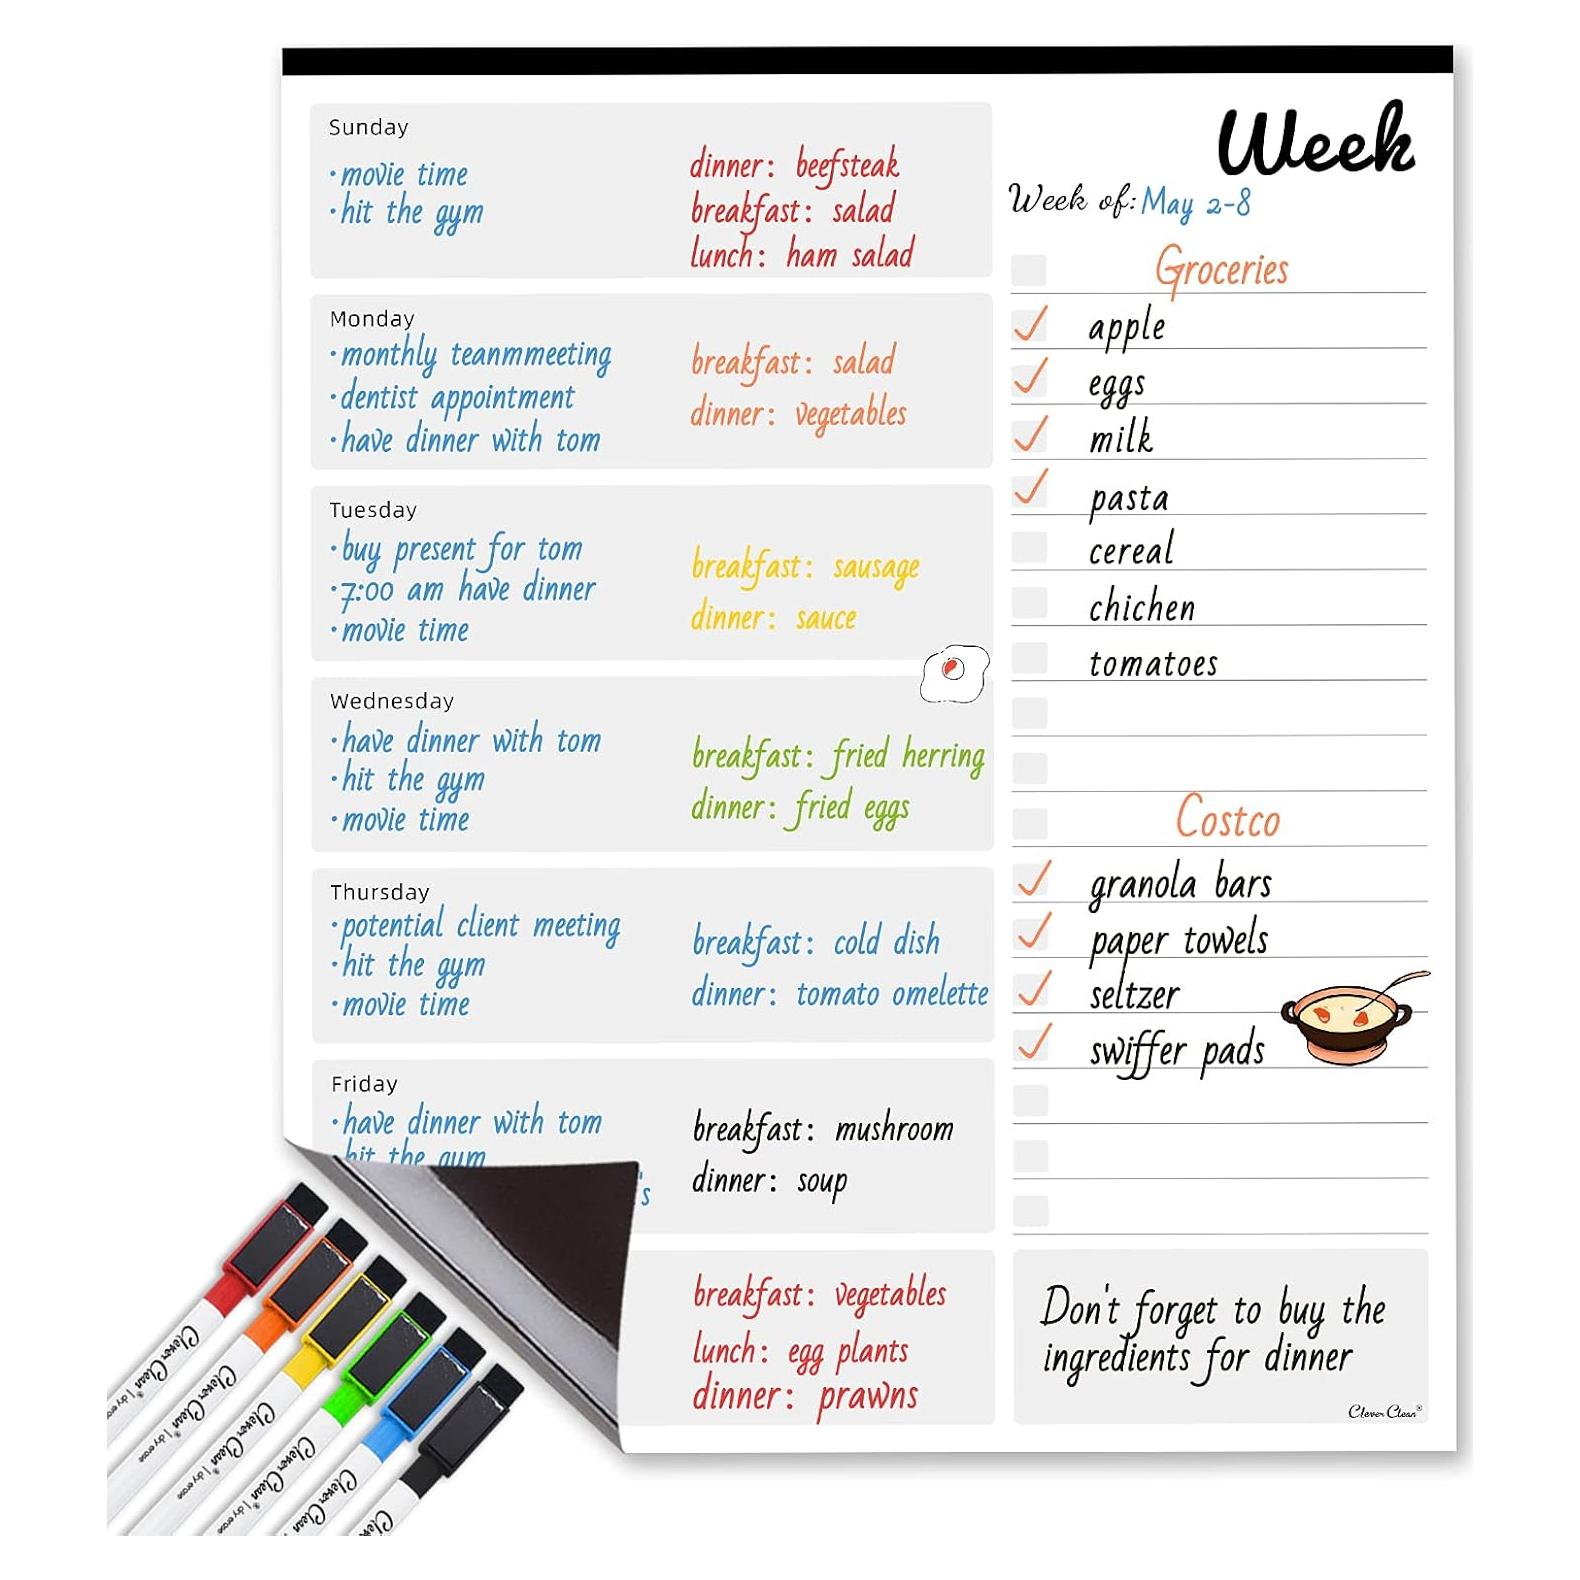 Week
Week of: May 2-8
Sunday
•movie time
•hit the gym
dinner: beefsteak
breakfast: salad
lunch: ham salad
Monday
•monthly teanmmeeting
•dentist appointment
•have dinner with tom
breakfast: salad
dinner: vegetables
Tuesday
•buy present for tom
•7:00 am have dinner
•movie time
breakfast: sausage
dinner: sauce
Wednesday
•have dinner with tom
•hit the gym
•movie time
breakfast: fried herring
dinner: fried eggs
Thursday
•potential client meeting
•hit the gym
•movie time
breakfast: cold dish
dinner: tomato omelette
Friday
•have dinner with tom
hit the gym
's
breakfast: mushroom
dinner: soup
breakfast: vegetables
lunch: egg plants
dinner: prawns
Groceries
apple
eggs
milk
pasta
cereal
chichen
tomatoes
Costco
granola bars
paper towels
seltzer
swiffer pads
Don't forget to buy the
ingredients for dinner
Clever Clean®
Clever Clean® | dry erase
Clever Clean® | dry erase
Clever Clean® | dry erase
Clever Clean® | dry erase
Clever Clean
Clever